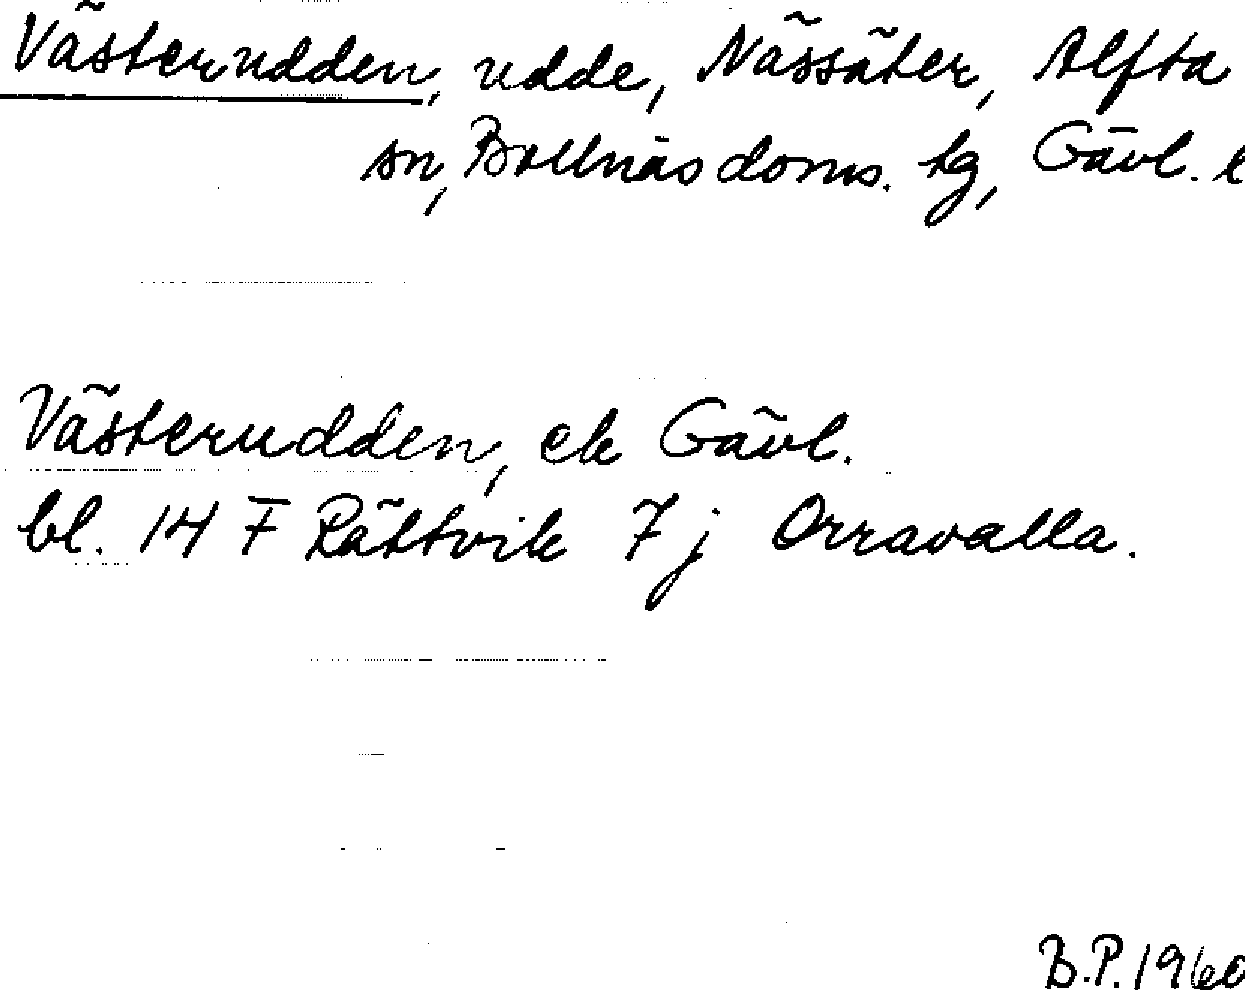 Västerudden, udde, Nässäter, Alfta
sn, Bollnäs doms. tg, Gävl. l
Västerudden, ek Gävl.
bl. 14 F Rättvik 7j Orravalla.
B.P. 1960